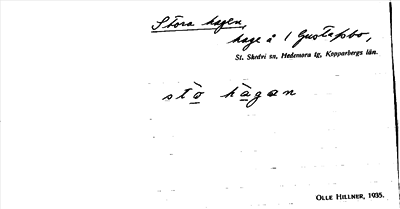 Stora hagen,
hage å 1 Gustafsbo,
St. Skedvi sn, Hedemora tg, Kopparbergs län.
stò hàgan
OLLE HILLNER, 1935.